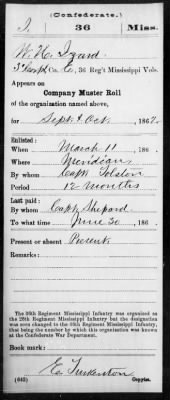 (Confederate.)
I 36 Miss.
W. H. Izard
3" Corpl Co. E, 36 Reg't Mississippi Vols.
Appears on
Company Muster Roll
of the organization named above,
for Sept. & Oct. 1862.
Enlisted:
When March 11, 186
Where Meridian
By whom Capt
Period 12 months
Last paid:
By whom Capt. Shepard
To what time June 30, 186
Present or absent Present
Remarks:
The 36th Regiment Mississippi Infantry was organized as
the 25th Regiment Mississippi Infantry but the designation
was soon changed to the 36th Regiment Mississippi Infantry,
that being the number by which this organization was known
at the Confederate War Department.
Book mark:
(642) Copyist.